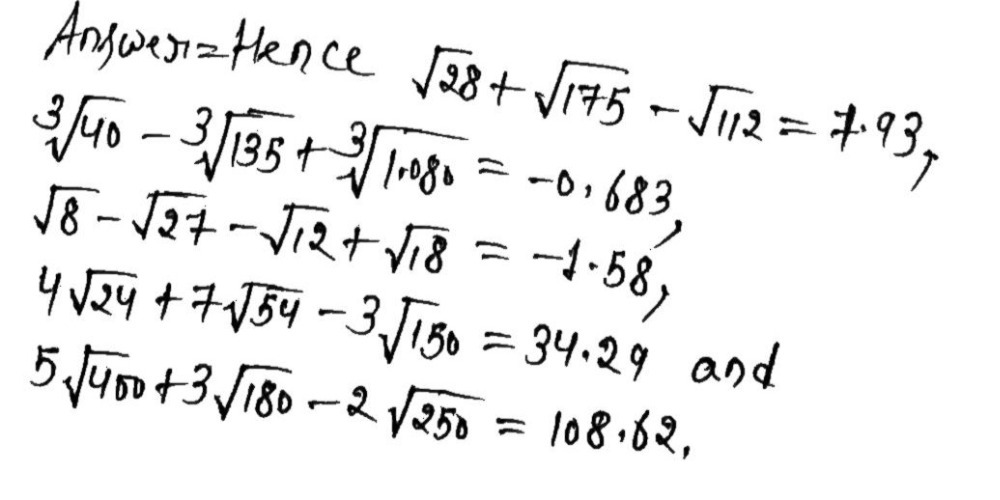 Answer=Hence √28+√175-√112=7.93,
∛40-∛135+∛1.080=-0.683,
√8-√27-√12+√18=-1.58,
4√24+7√54-3√150=34.29 and
5√400+3√180-2√250=108.62.